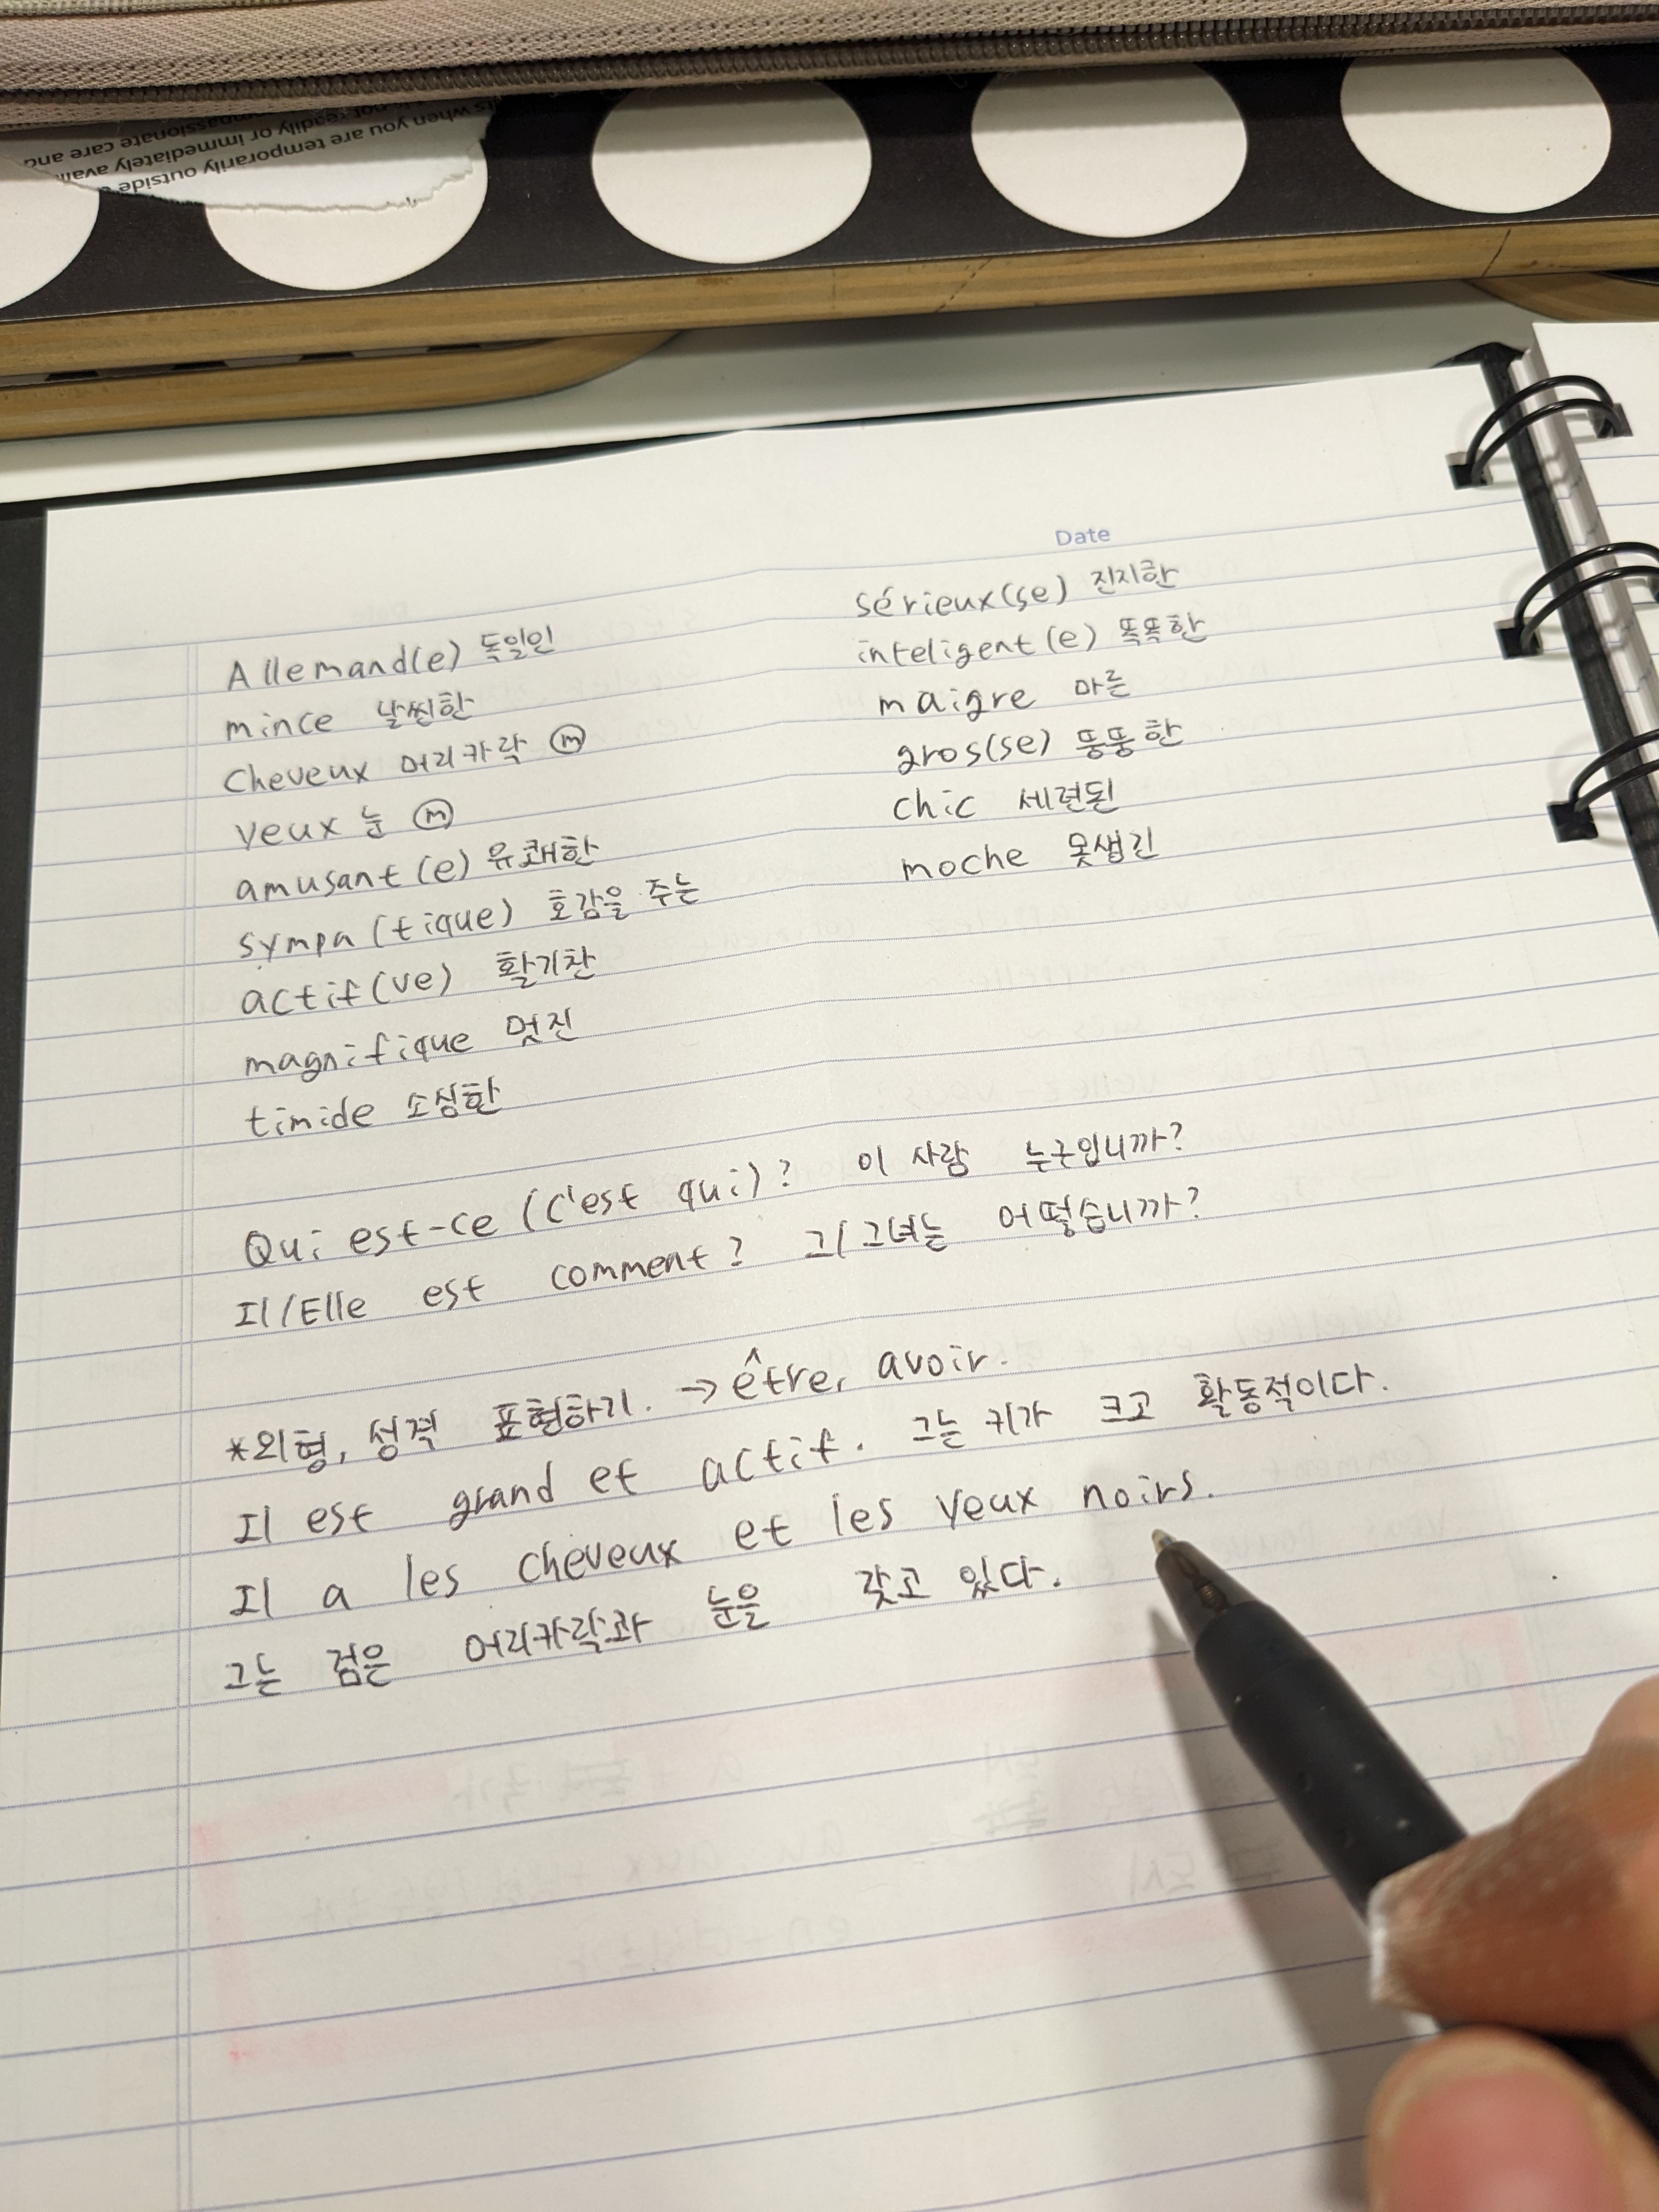 when you are temporarily outside
not readily or immediately avail
passionate care and
Date
Allemand(e) 독일인
mince 날씬한
Cheveux 머리카락 ⓜ
yeux 눈 ⓜ
amusant(e) 유쾌한
sympa(tique) 호감을 주는
actif(ve) 활기찬
magnifique 멋진
timide 소심한
sérieux(se) 진지한
inteligent(e) 똑똑한
maigre 마른
gros(se) 뚱뚱한
chic 세련된
moche 못생긴
Qui est-ce (c'est qui)? 이 사람 누구입니까?
Il/Elle est comment? 그/그녀는 어떻습니까?
*외형, 성격 표현하기. → être, avoir.
Il est grand et actif. 그는 키가 크고 활동적이다.
Il a les cheveux et les yeux noirs.
그는 검은 머리카락과 눈을 갖고 있다.